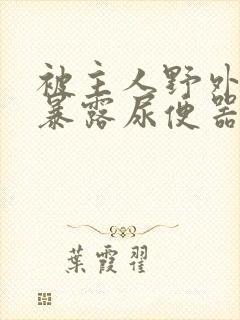 被主人野外
暴露尿便器
葉霞翟